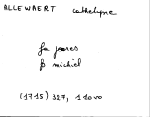 ALLEWAERT Cathelyne
fa joores
fs michiel
(1715) 327, 110vo